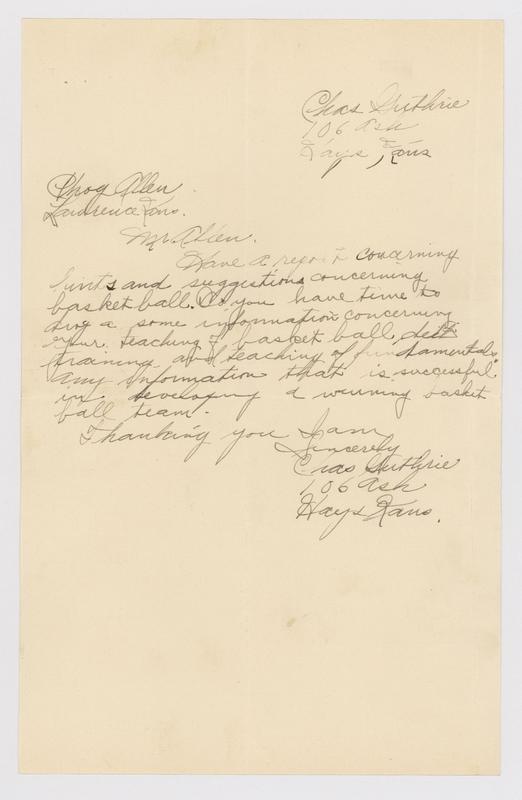 Chas Guthrie
106 Ash
Hays, Kans
Phog Allen.
Lawrence Kans.
Mr Allen.
Have a report concerning
hints and suggestions concerning
basket ball. Do you have time to
give a some information concerning
your teaching of basket ball, diet
training and teaching of fundamentals.
any information that is successful
in developing a winning basket
ball team.
Thanking you I am
Sincerely
Chas Guthrie
106 Ash
Hays Kans.